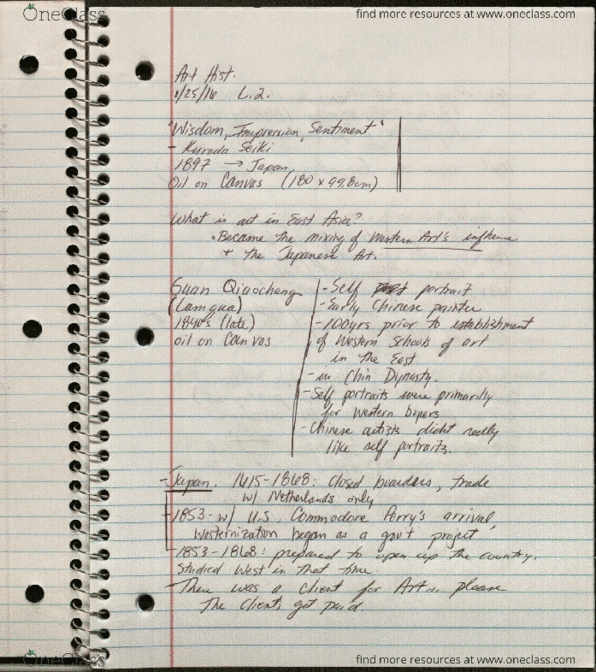 OneClass
find more resources at www.oneclass.com
Art Hist.
1/25/16 L.2.
"Wisdom, Impression, Sentiment"
- Kuroda Seiki
1897 → Japan
Oil on Canvas (180 x 99.8cm)
What is art in East Asia?
• Became the mixing of Western Art's influence
+ the Japanese Art.
Guan Qiaochang
(Lamqua)
1840's (late)
oil on Canvas
- Self portrait
- Early Chinese painter
- 100yrs prior to establishment
of Western Schools of art
in the East
- in Chin Dynasty.
- Self portraits were primarily
for Western buyers
- Chinese artists didnt really
like self portraits.
- Japan. 1615-1868: closed boarders, trade
w/ Netherlands only
- 1853 - w/ U.S. Commodore Perry's arrival,
Westernization began as a gov't project'
- 1853-1868: prepared to open up the country.
Studied West in that time
There was a client for Art → please
The client, get paid
OneClass
find more resources at www.oneclass.com